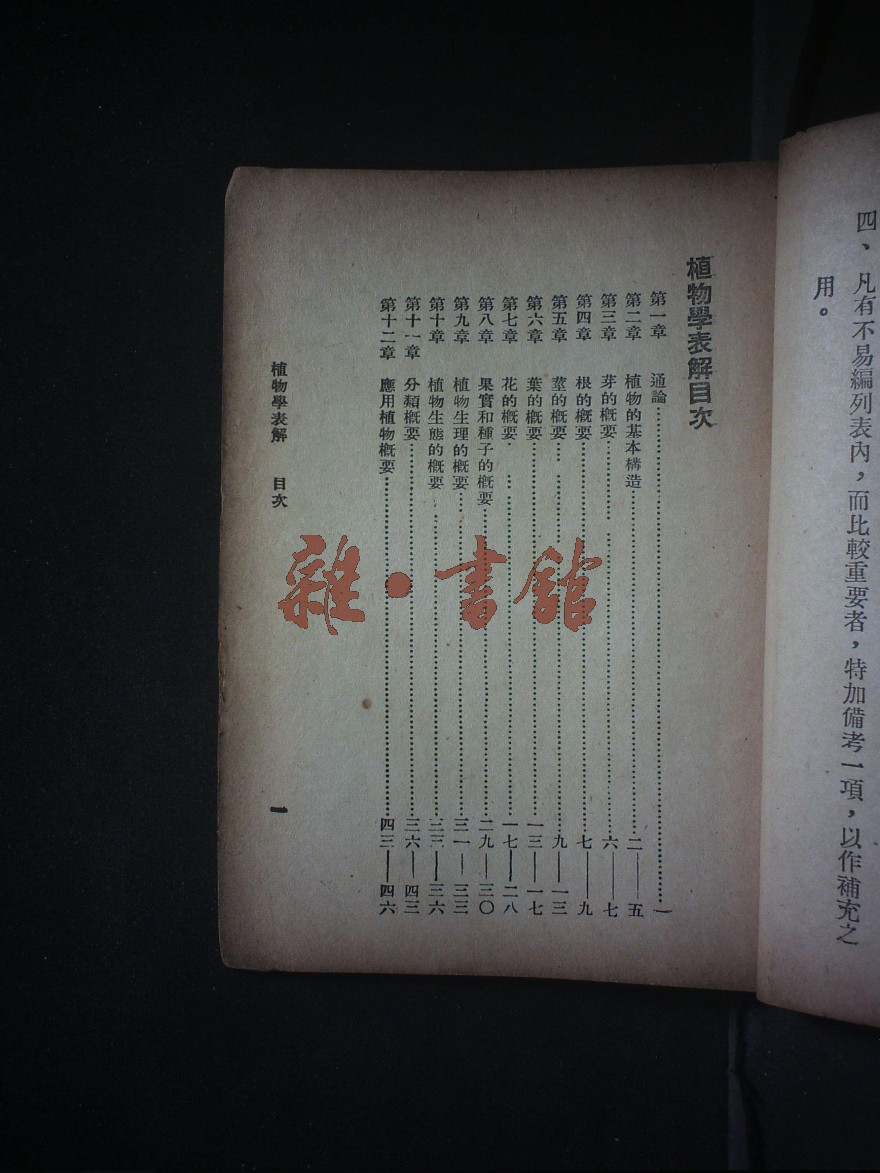 四、凡有不易編列表內，而比較重要者，特加備考一項，以作補充之
用。
植物學表解目次
第一章 通論……一
第二章 植物的基本構造……二——五
第三章 芽的概要……六——七
第四章 根的概要……七——九
第五章 莖的概要……九——一三
第六章 葉的概要……一三——一七
第七章 花的概要……一七——二八
第八章 果實和種子的概要……二九——三〇
第九章 植物生理的概要……三一——三三
第十章 植物生態的概要……三三——三六
第十一章 分類概要……三六——四三
第十二章 應用植物概要……四三——四六
植物學表解 目次
一
雜·書館